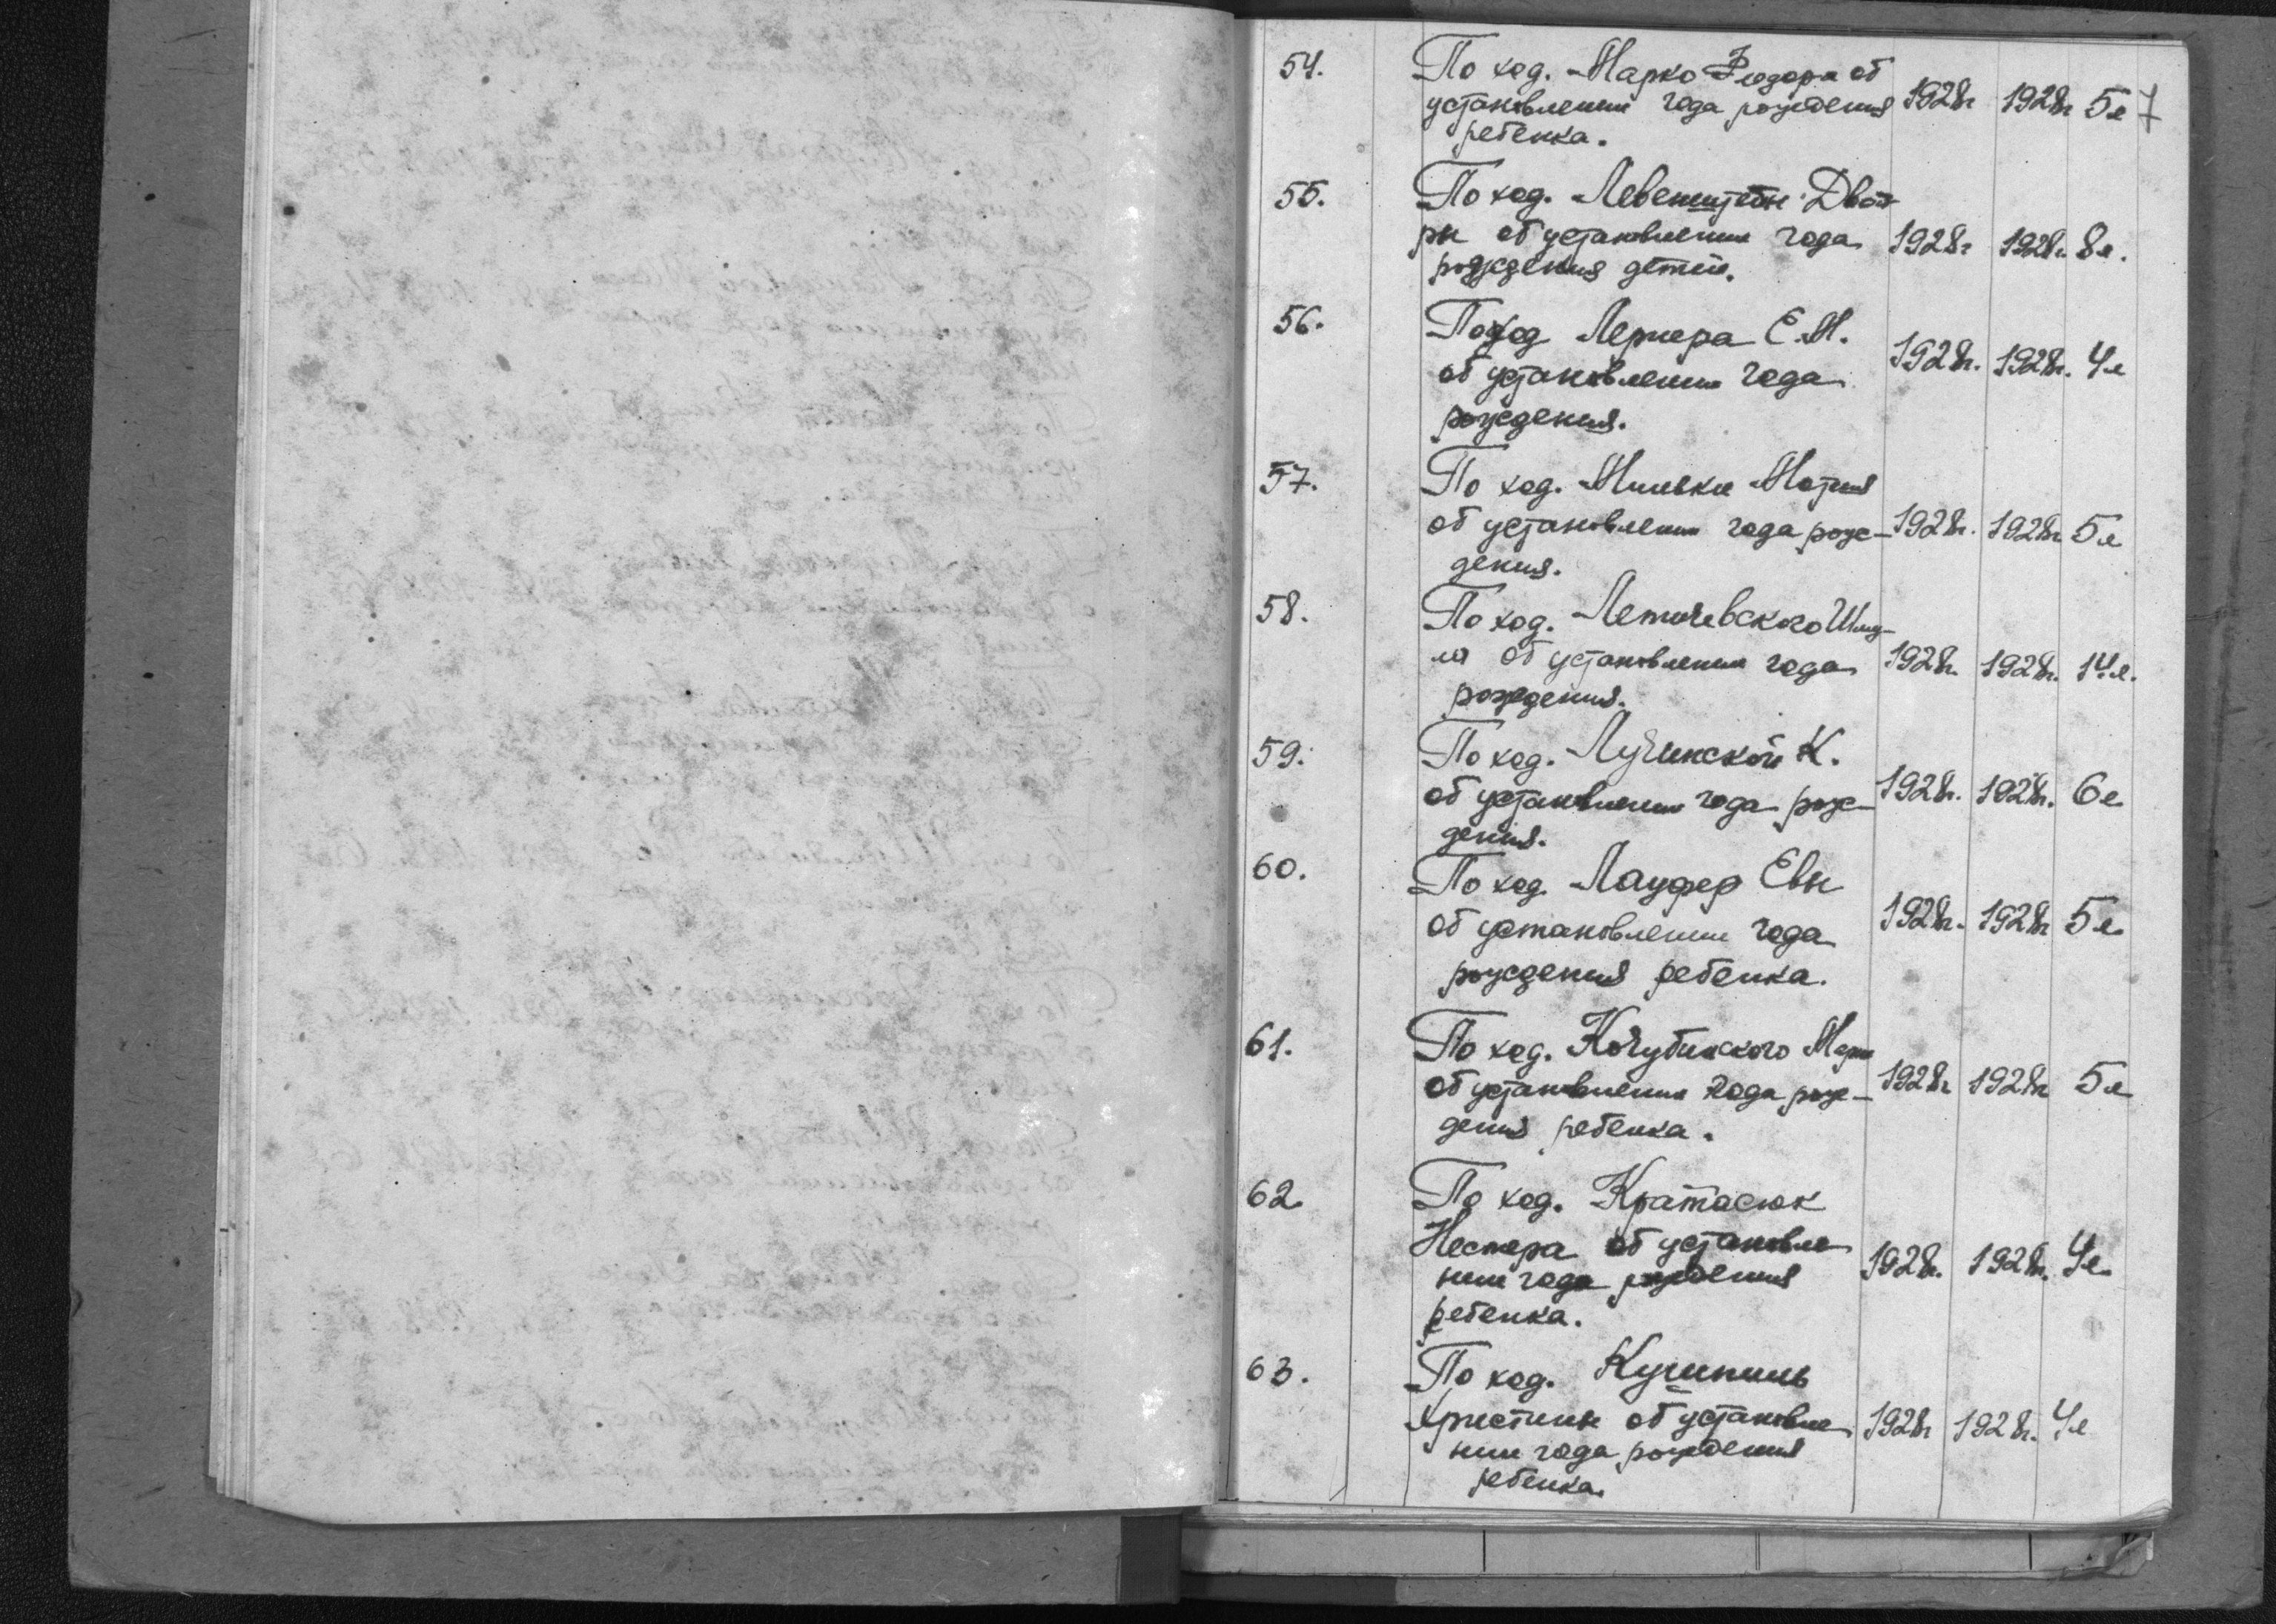 7
54. По ход. Марко Федора об
установлении года рождения 1928г 1928г 5л
ребенка.
55. По ход. Левенштейн Двой-
ры об установлении года 1928г 1928г. 8л.
рождения детей.
56. По ход Лернера Е.М.
об установлении года 1928г. 1928г. 4л
рождения.
57. По ход. Мотия
об установлении года рож- 1928г. 1928г 5л
дения.
58. По ход. Летичевского Шму-
ля об установлении года 1928г. 1928г. 14л.
рождения.
59. По ход. Лучинской К.
об установлении года рож- 1928г. 1928г. 6л
дения.
60. По ход. Лауфер Евы
об установлении года 1928г. 1928г 5л
рождения ребенка.
61. По ход. Кочубинского
об установлении года рож- 1928г 1928г 5л
дения ребенка.
62. По ход. Кратасюк
Нестера об установле
нии года рождения 1928г. 1928г. 4л
ребенка.
63. По ход.
Христины об установле 1928г 1928г. 4л
нии года рождения
ребенка.